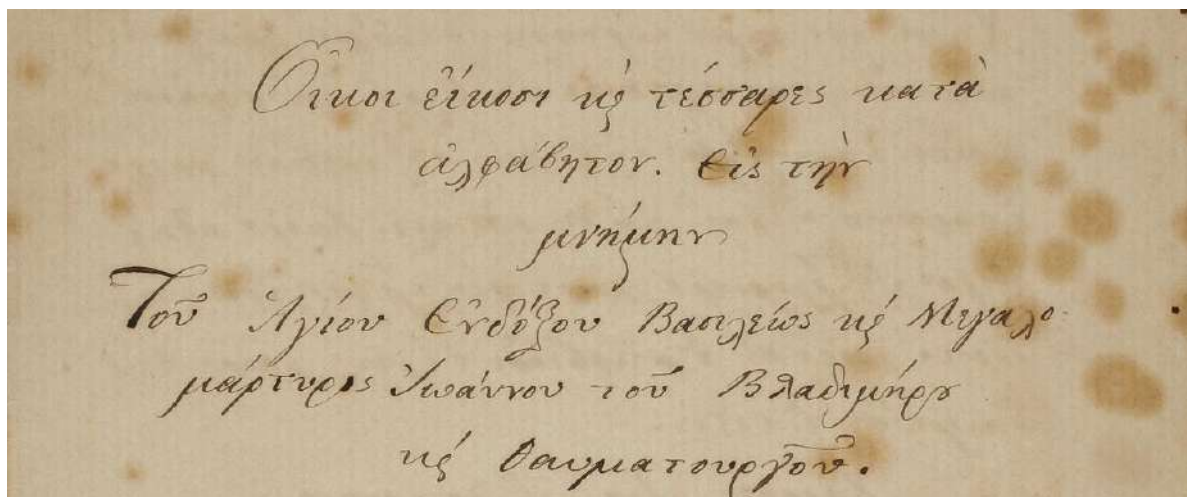 Οἶκοι εἴκοσι κ̀ τέσσαρες κατὰ
ἀλφάβητον. Εἰς τὴν
μνήμην
Τοῦ Ἁγίου Ἐνδόξου Βασιλέως κ̀ Μεγαλο-
μάρτυρος Ἰωάννου τοῦ Βλαδιμήρȣ
κ̀ θαυματουργοῦ.